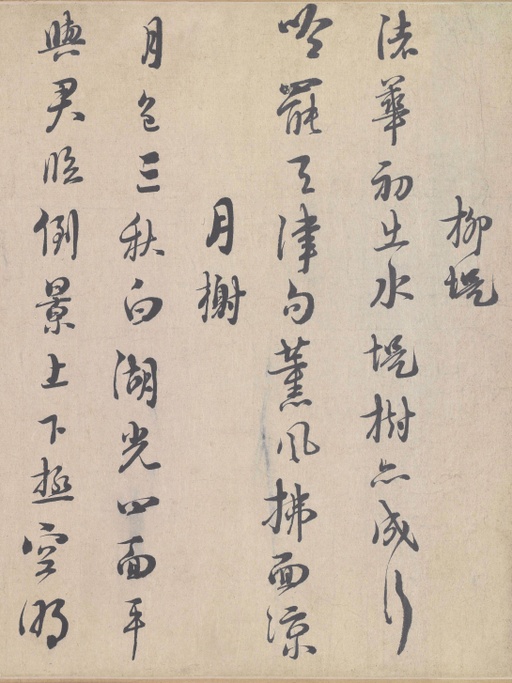 柳堤
渚華初出水堤樹亦成行
吟罷天津句薰風拂面涼
月榭
月色三秋白湖光四面平
與君臨倒景上下極空明